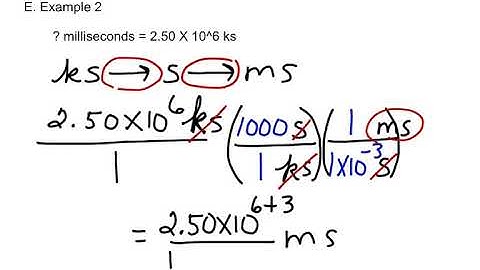 E. Example 2
? milliseconds = 2.50 X 10^6 ks
ks → s → ms
2.50X10^6 ks/1 (1000 s/1 ks)(1 ms/1X10^-3 s)
= 2.50X10^6+3/1 ms